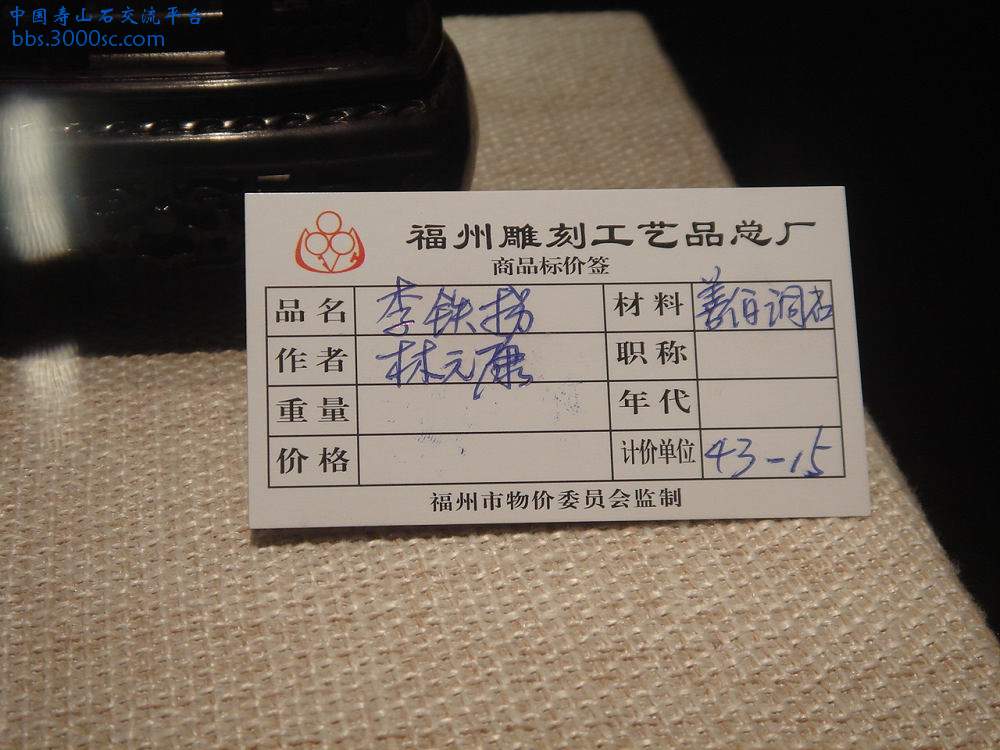 中国寿山石交流平台
bbs.3000sc.com
福州雕刻工艺品总厂
商品标价签
品名 李铁拐 材料 善伯洞石
作者 林元康 职称
重量 年代
价格 计价单位 43-15
福州市物价委员会监制